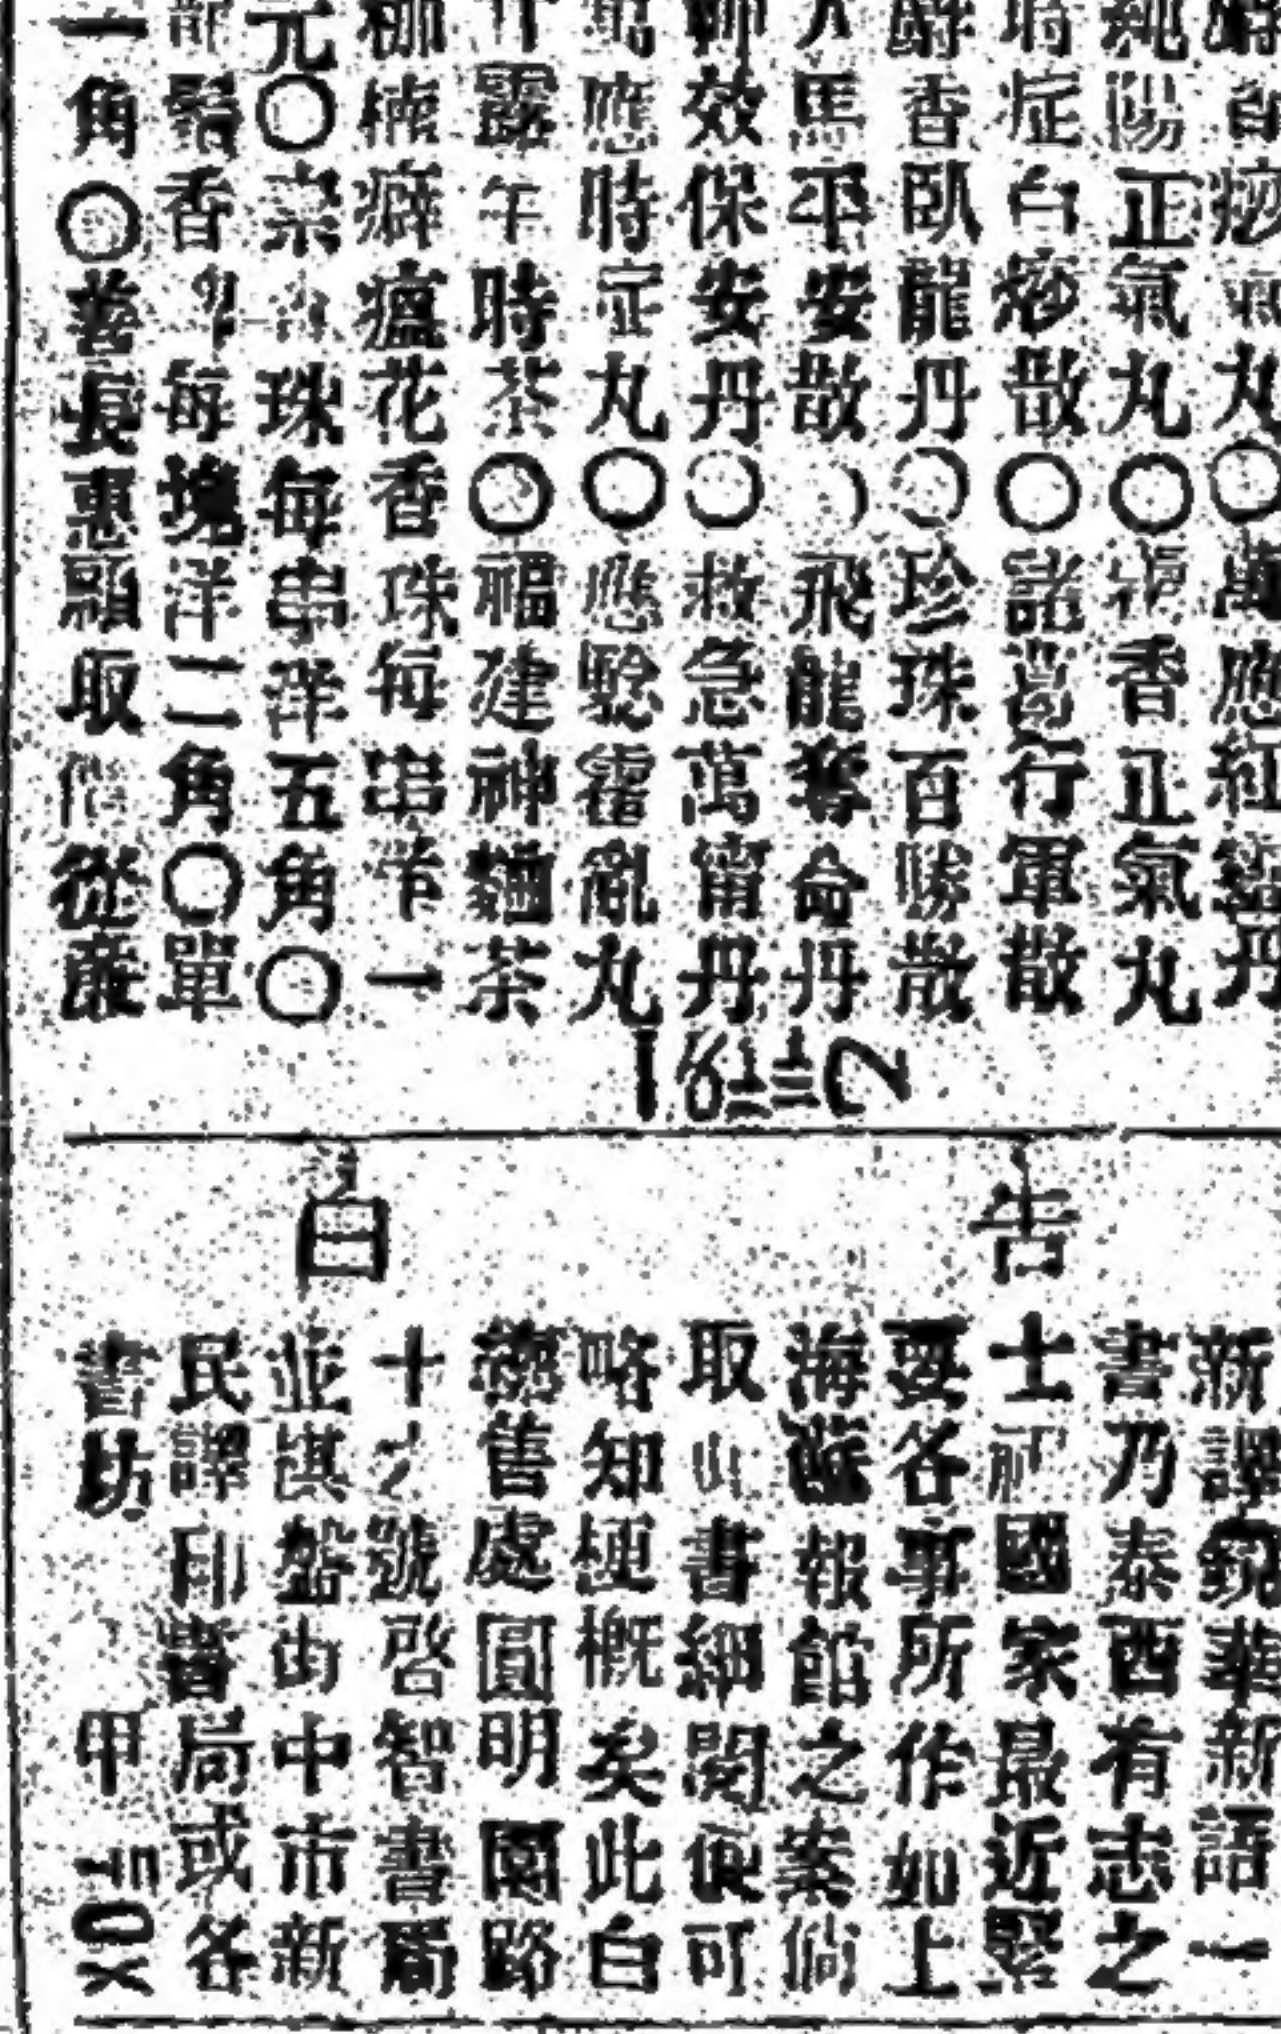 痧氣丸○萬應紅靈丹
純陽正氣丸○藿香正氣丸
時症白痧散○諸葛行軍散
香臥龍丹○珍珠百勝散
人馬平安散○飛龍奪命丹
效保安丹○救急萬甯丹
應時症丸○應驗霍亂丸
甘露午時茶○福建神麯茶
癖瘟花香珠每串洋一
元○珠每串洋五角○
香 每塊洋二角○單
一角○善長惠顧取價從廉
告白
新譯 華新語一
書乃泰西有志之
士 國家最近緊
要各事所作如上
海蘇報館之案倘
取此書細閱便可
略知梗概矣此白
售處圓明園路
十 號啓智書局
並棋盤街中市新
民譯印書局或各
書坊 甲